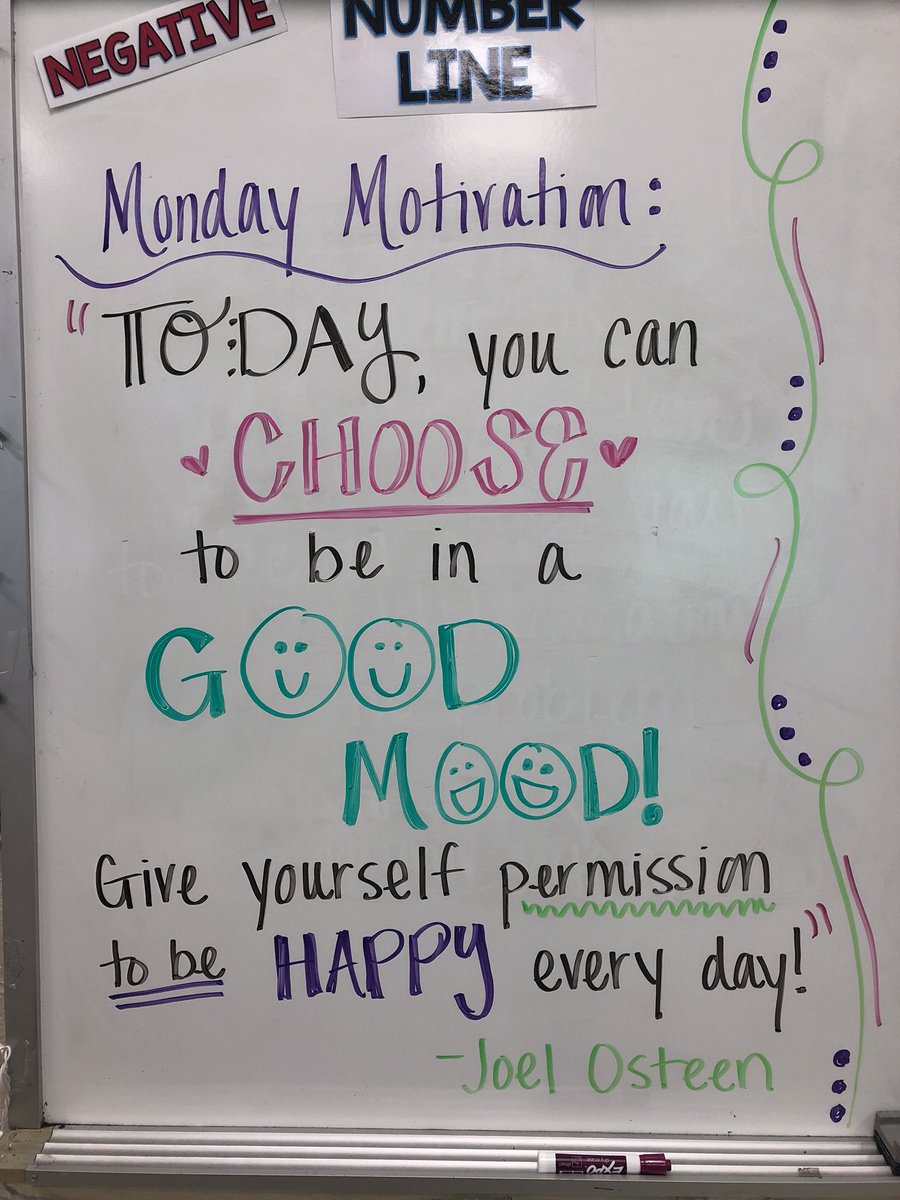 NEGATIVE
NUMBER
LINE
Monday Motivation:
"TODAY, you can
CHOOSE
to be in a
GOOD
MOOD!
Give yourself permission
to be HAPPY every day!"
-Joel Osteen
EXPO